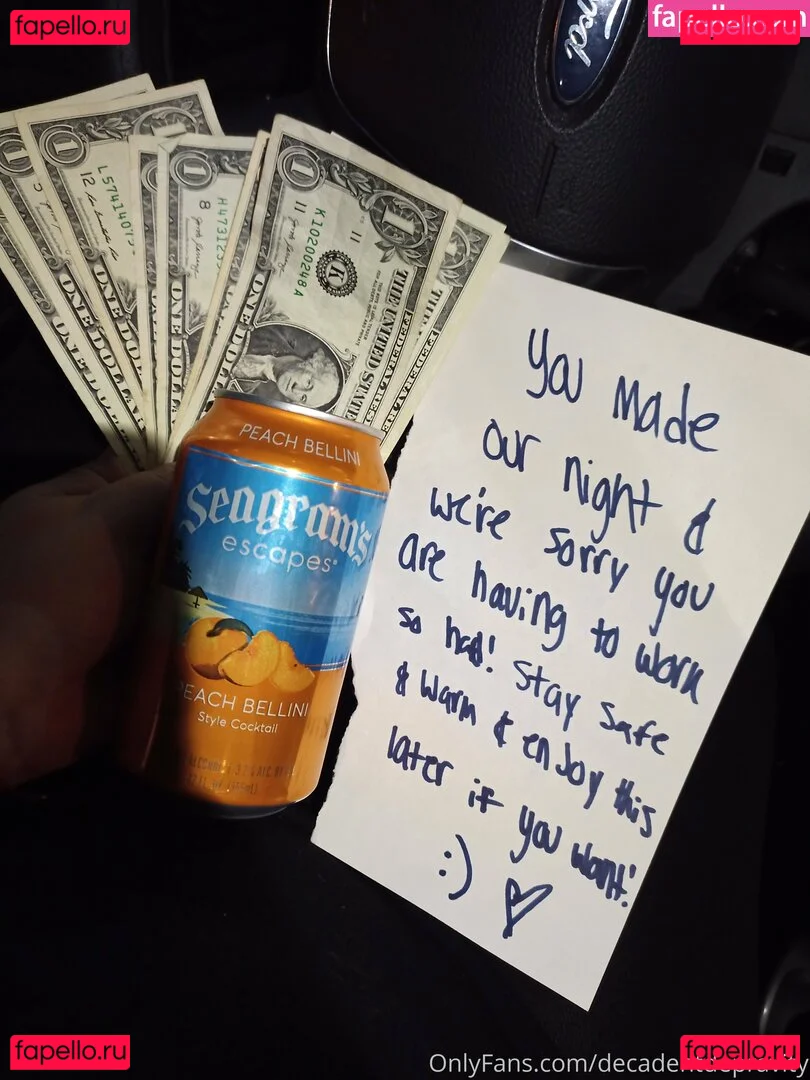 fapello.ru
fapello.ru
Ford
1
1
1
1
L574140
12
H473123
8
K10200248A
11
11
K
THE UNITED STATE
FEDERAL RESE
ONE DOLLAR
ONE DOLLA
ONE DOLLA
PEACH BELLINI
Seagram's
escapes
PEACH BELLINI
Style Cocktail
You made
our night &
we're sorry you
are having to work
so hard! Stay safe
& warm & enjoy this
later if you want!
:) ♡
fapello.ru
fapello.ru
OnlyFans.com/decadentdepravity